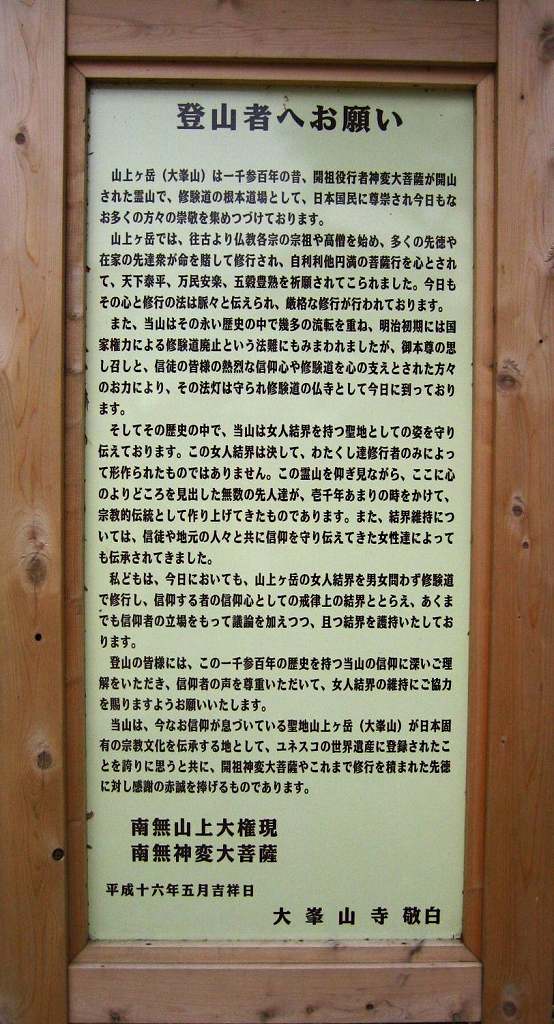 登山者へお願い
山上ヶ岳（大峯山）は一千参百年の昔、開祖役行者神変大菩薩が開山
された霊山で、修験道の根本道場として、日本国民に尊崇され今日もな
お多くの方々の崇敬を集めつづけております。
山上ヶ岳では、往古より仏教各宗の宗祖や高僧を始め、多くの先徳や
在家の先達衆が命を賭して修行され、自利利他円満の菩薩行を心とされ
て、天下泰平、万民安楽、五穀豊熟を祈願されてこられました。今日も
その心と修行の法は脈々と伝えられ、厳格な修行が行われております。
また、当山はその永い歴史の中で幾多の流転を重ね、明治初期には国
家権力による修験道廃止という法難にもみまわれましたが、御本尊の思
し召しと、信徒の皆様の熱烈な信仰心や修験道を心の支えとされた方々
のお力により、その法灯は守られ修験道の仏寺として今日に到っており
ます。
そしてその歴史の中で、当山は女人結界を持つ聖地としての姿を守り
伝えております。この女人結界は決して、わたくし達修行者のみによっ
て形作られたものではありません。この霊山を仰ぎ見ながら、ここに心
のよりどころを見出した無数の先人達が、壱千年あまりの時をかけて、
宗教的伝統として作り上げてきたものであります。また、結界維持につ
いては、信徒や地元の人々と共に信仰を守り伝えてきた女性達によって
も伝承されてきました。
私どもは、今日においても、山上ヶ岳の女人結界を男女問わず修験道
で修行し、信仰する者の信仰心としての戒律上の結界ととらえ、あくま
でも信仰者の立場をもって議論を加えつつ、且つ結界を護持いたしてお
ります。
登山の皆様には、この一千参百年の歴史を持つ当山の信仰に深いご理
解をいただき、信仰者の声を尊重いただいて、女人結界の維持にご協力
を賜りますようお願いいたします。
当山は、今なお信仰が息づいている聖地山上ヶ岳（大峯山）が日本固
有の宗教文化を伝承する地として、ユネスコの世界遺産に登録されたこ
とを誇りに思うと共に、開祖神変大菩薩やこれまで修行を積まれた先徳
に対し感謝の赤誠を捧げるものであります。
南無山上大権現
南無神変大菩薩
平成十六年五月吉祥日
大峯山寺 敬白